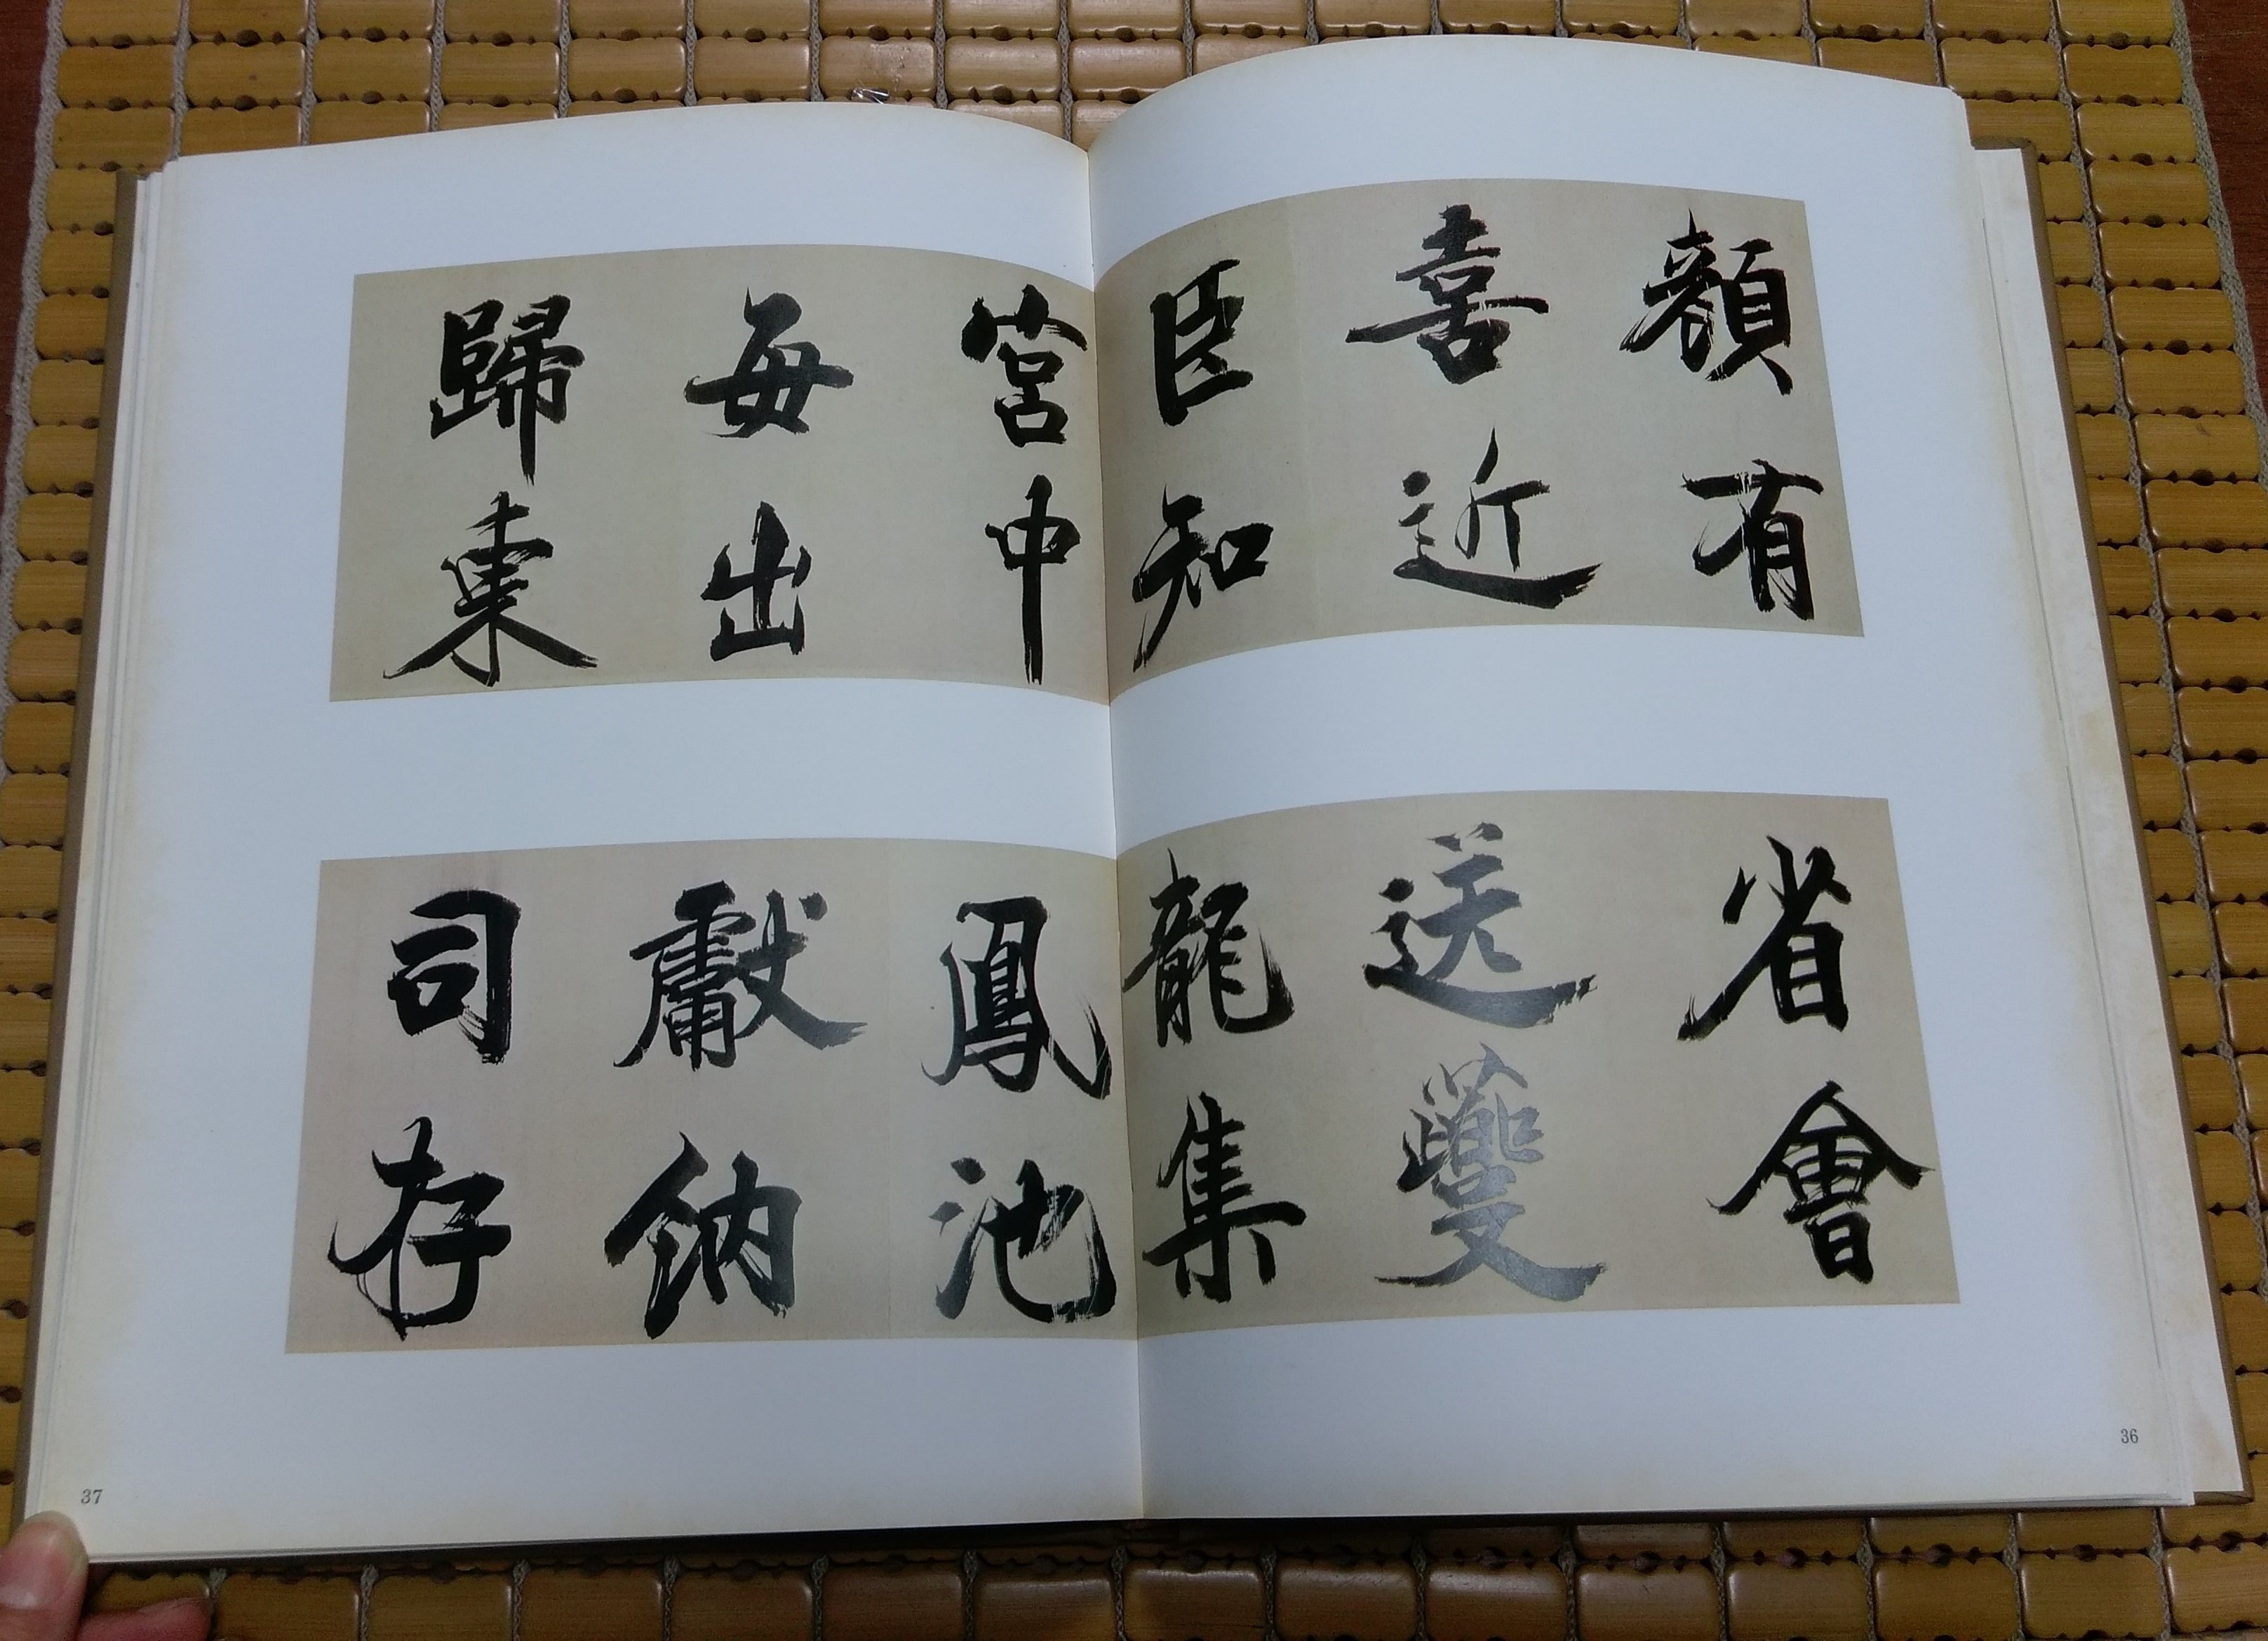 顔有
喜近
臣知
宮中
每出
歸東
省會
送夔
龍集
鳳池
獻納
司存
36
37